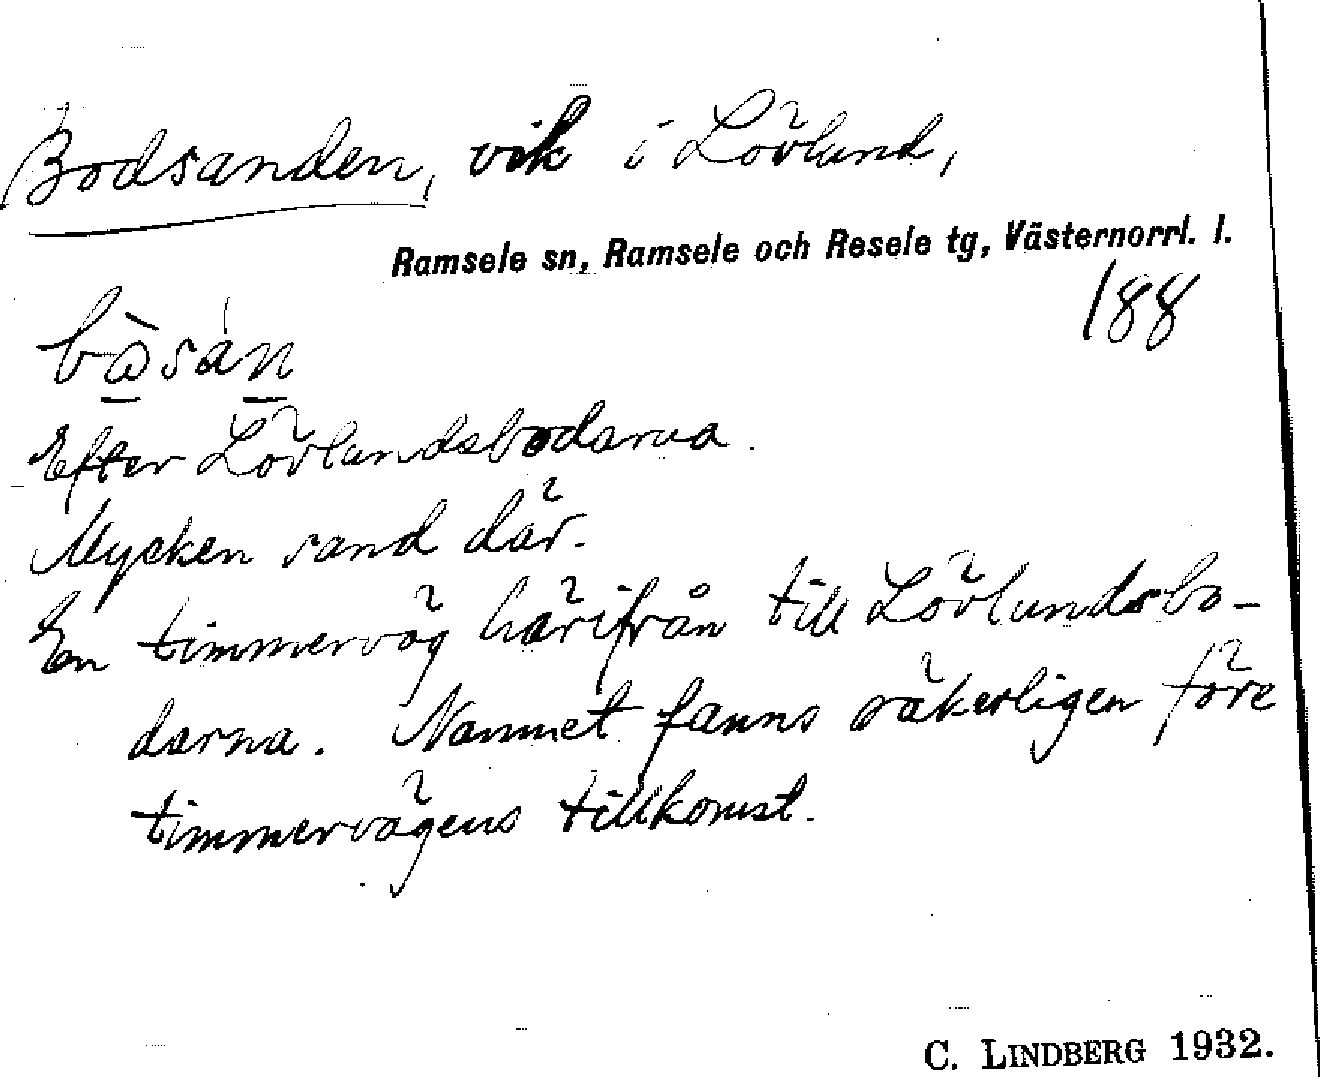 Bodsanden, vik i Lövlund,
Ramsele sn, Ramsele och Resele tg, Västernorrl. l.
188
Efter Lövlundsbodarna.
Mycken sand där.
En timmerväg härifrån till Lövlundsbo-
darna. Namnet fanns säkerligen före
timmervägens tillkomst.
C. LINDBERG 1932.